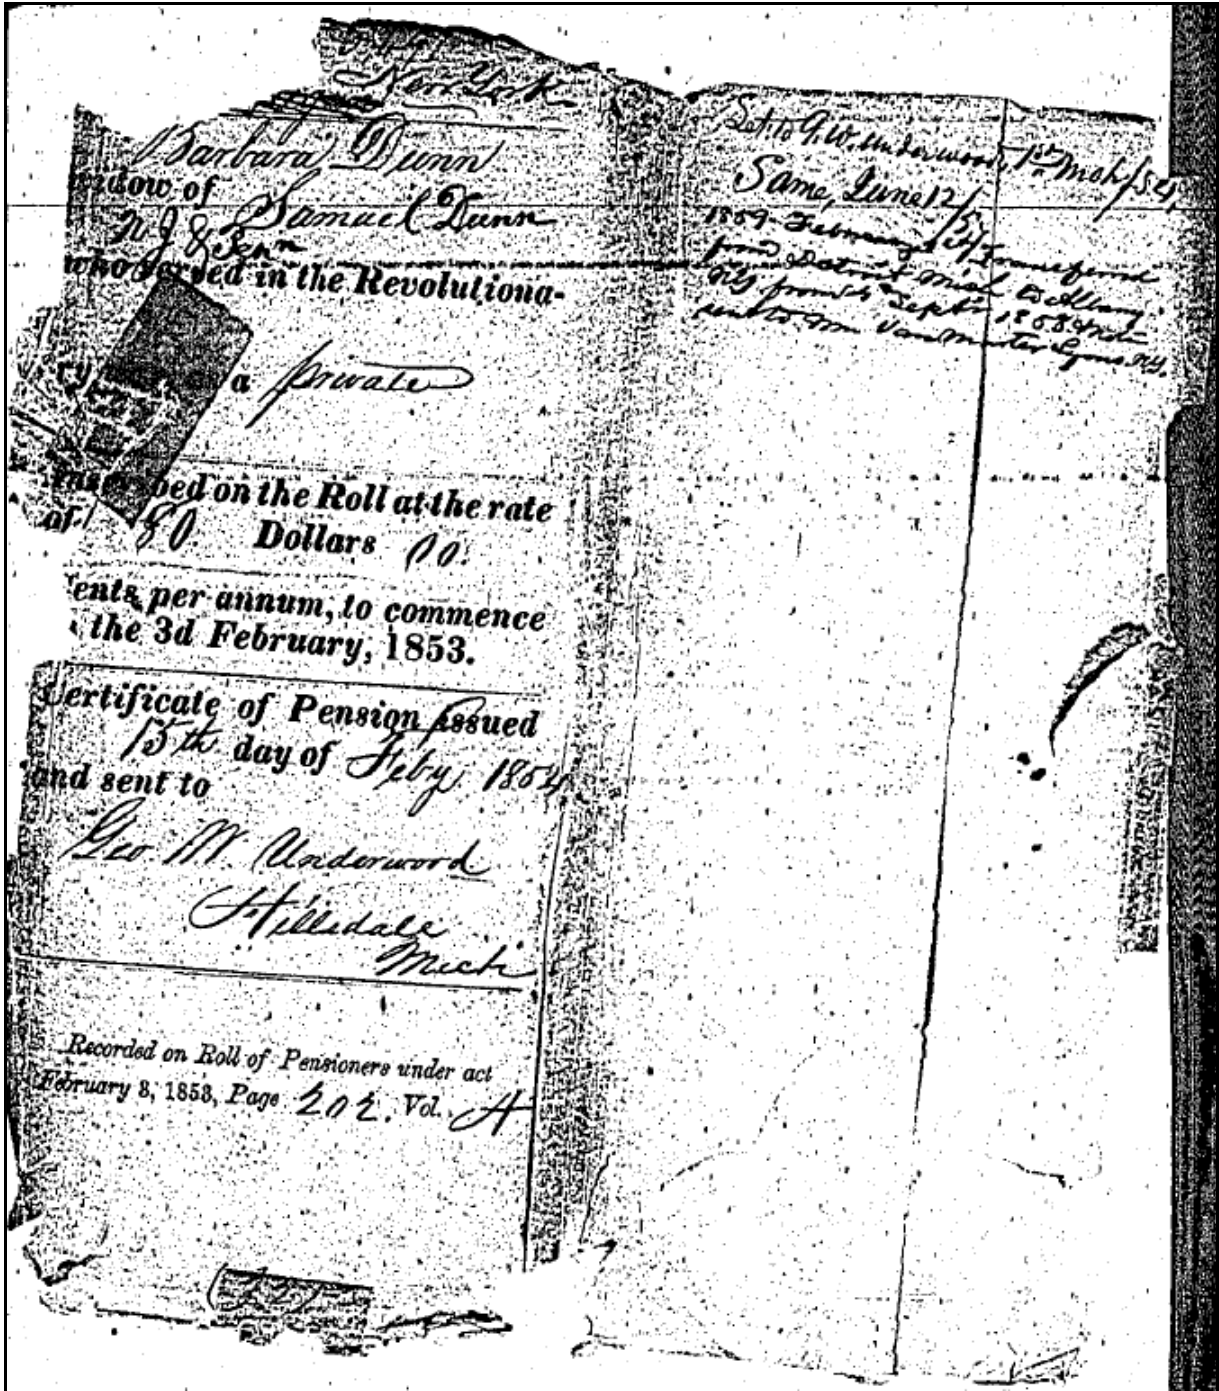 New York
Barbara Dunn
widow of
Samuel Dunn
N J & Penn
who served in the Revolutiona-
ry a private
Inscribed on the Roll at the rate
of 80 Dollars 00
ents per annum, to commence
the 3d February, 1853.
Certificate of Pension issued
15th day of Feby 1854
and sent to
Geo W. Underwood
Hillsdale
Mich
Recorded on Roll of Pensioners under act
February 3, 1853, Page 202. Vol. A
Let. to G. W. Underwood, Mch
Same, June 12/
1859 February Transferred
from Detroit Mich to Albany
NY from 4 Sept. 1858 Noti
sent to Wm Van Marter Lyons NY.